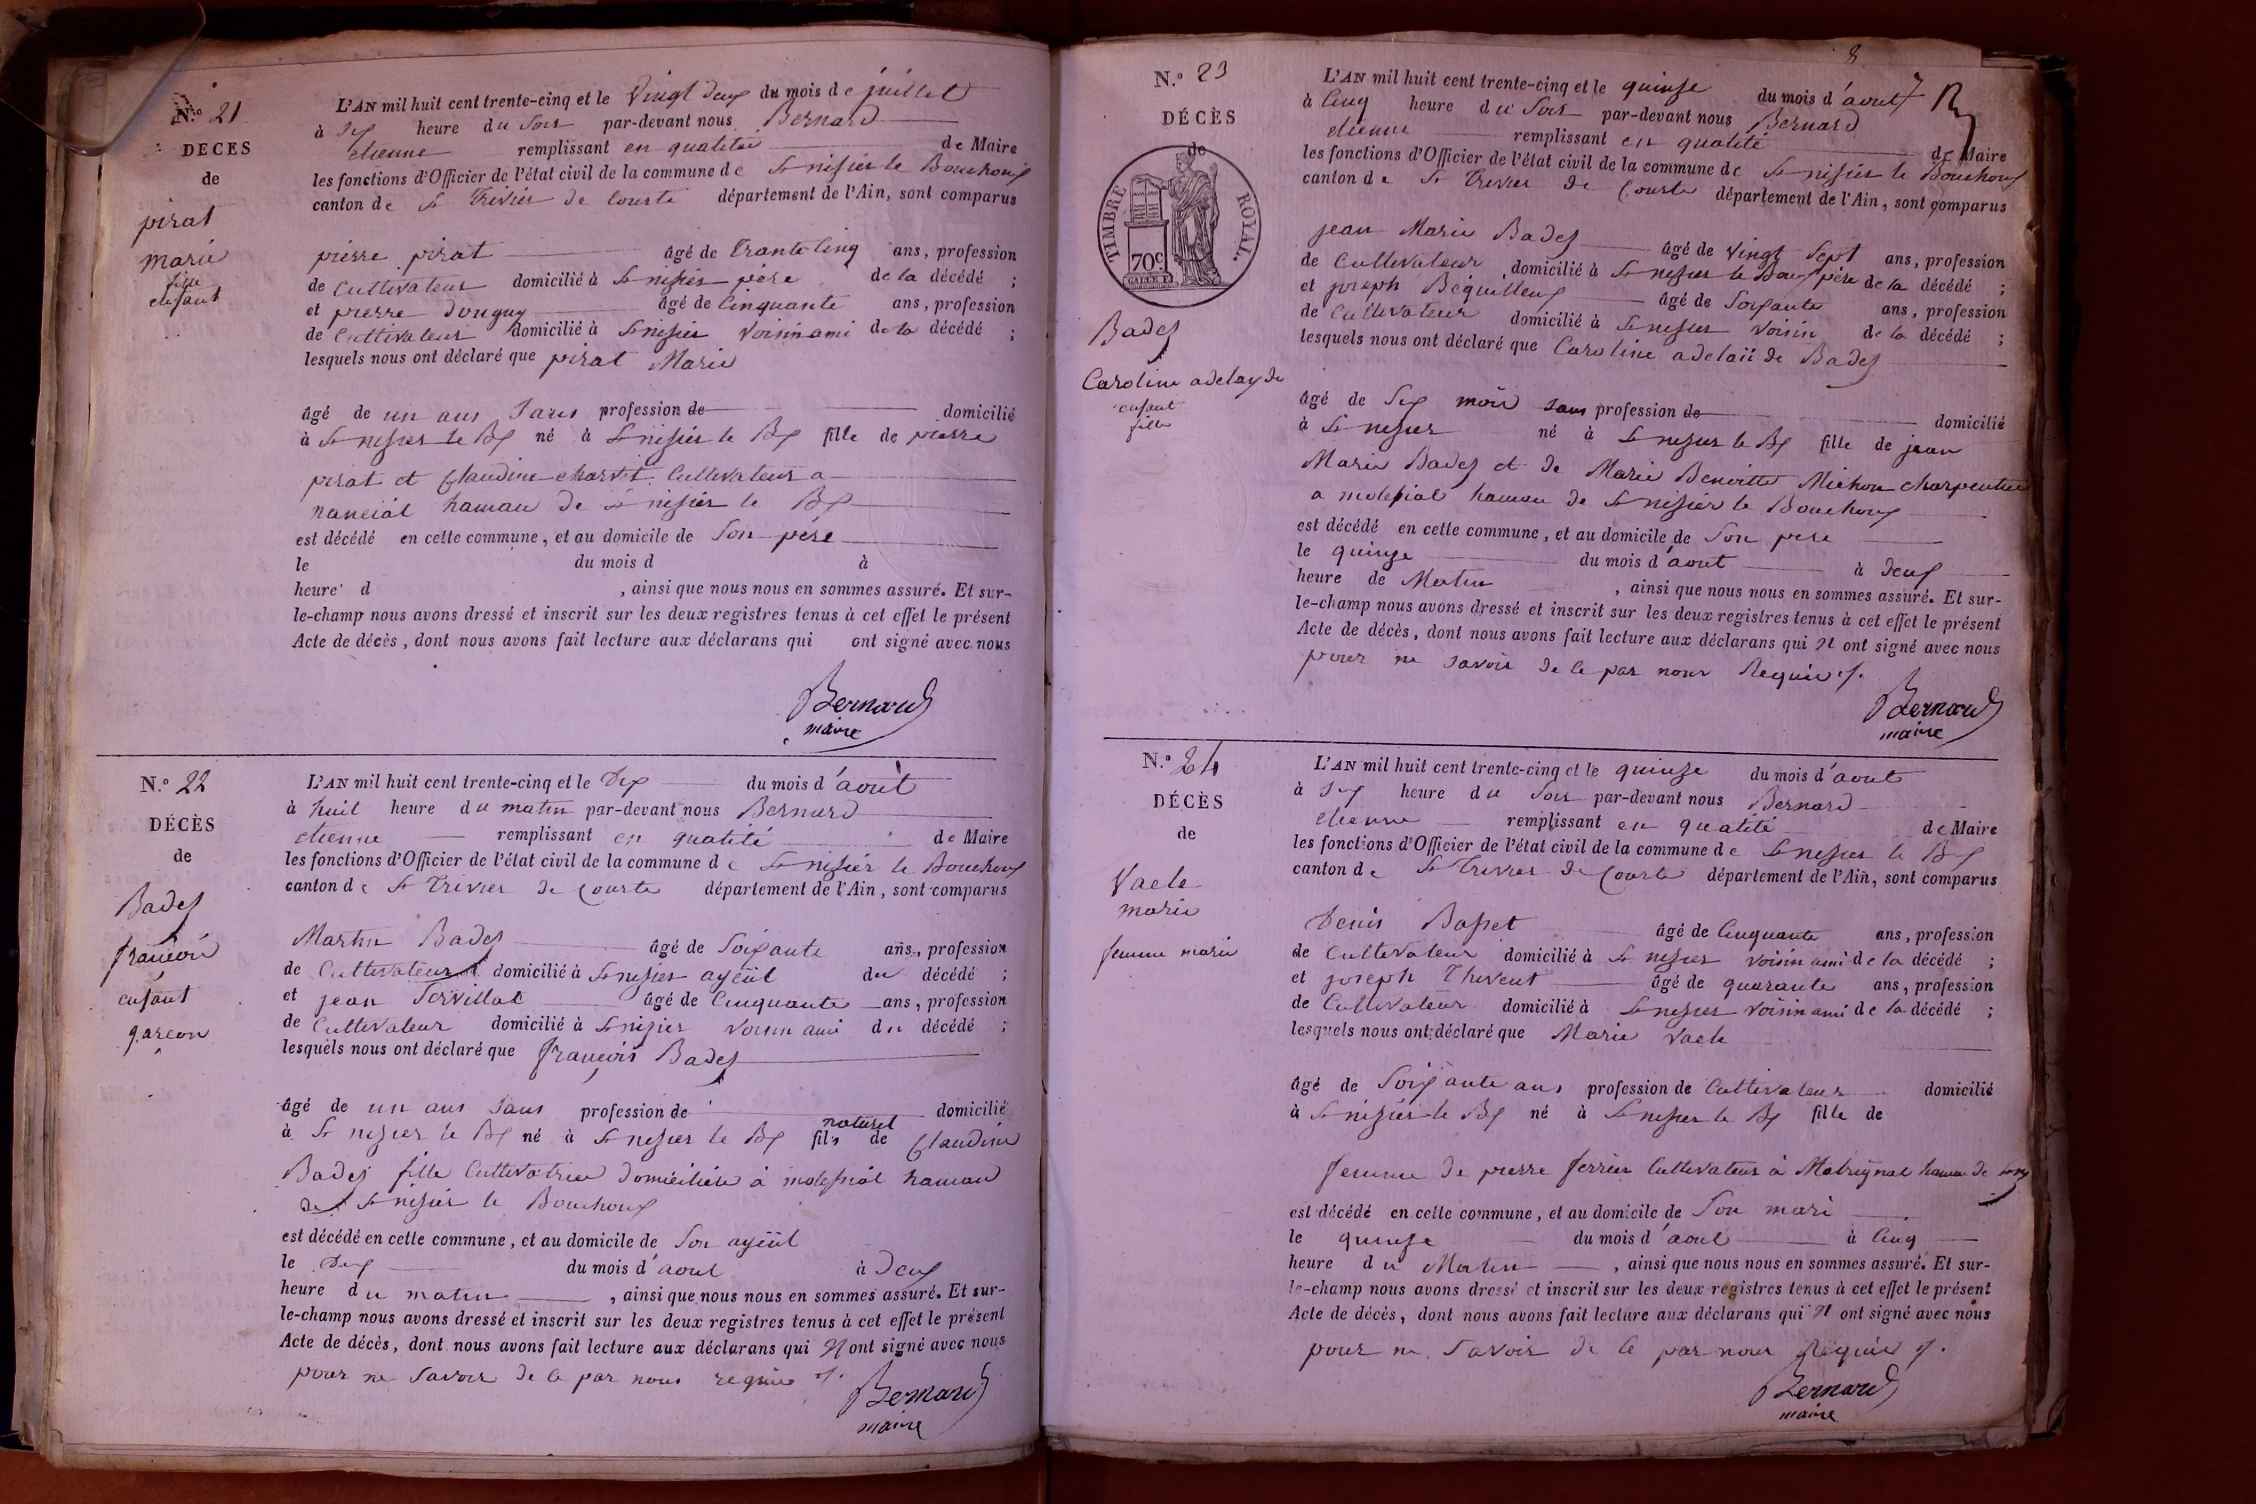 N.º 21
DECES
de
pirat
marie
fille
enfant
L'AN mil huit cent trente-cinq et le Vingt deux du mois de juillet
à Six heure du Soir par-devant nous Bernard
etienne remplissant en qualitée de Maire
les fonctions d'Officier de l'état civil de la commune de St nisier le Bouchoux
canton de St Trivier de Courte département de l'Ain, sont comparus
pierre pirat âgé de Trante Cinq ans, profession
de Cultivateur domicilié à St nisier père de la décédé ;
et pierre Donguy âgé de Cinquante ans, profession
de Cultivateur domicilié à St nisier Voisin ami de la décédé ;
lesquels nous ont déclaré que pirat Marie
âgé de un ans Sans profession de domicilié
à St nisier le Bx né à St nisier le Bx fille de pierre
pirat et Claudine Cultivateur a
hamau de St nisier le Bx
est décédé en cette commune, et au domicile de Son père
le du mois d à
heure d , ainsi que nous nous en sommes assuré. Et sur-
le-champ nous avons dressé et inscrit sur les deux registres tenus à cet effet le présent
Acte de décès, dont nous avons fait lecture aux déclarans qui ont signé avec nous
Bernard
maire
N.º 22
DÉCÈS
de
Badez
francois
enfant
garcon
L'AN mil huit cent trente-cinq et le Dix du mois d'août
à huit heure du matin par-devant nous Bernard
etienne remplissant en qualité de Maire
les fonctions d'Officier de l'état civil de la commune de St nisier le Bouchoux
canton de St Trivier de Courte département de l'Ain, sont comparus
Martin Badez âgé de Soixante ans, profession
de Cultivateur domicilié à St nisier ayeül du décédé ;
et jean Servillat âgé de Cinquante ans, profession
de Cultivateur domicilié à St nisier Voisin ami du décédé ;
lesquels nous ont déclaré que francois Badez
âgé de un ans Sans profession de domicilié
à St nisier le Bx né à St nisier le Bx fils naturel de Claudine
Badez fille Cultivatrice Domiciliée à molessiat hamau
de St nisier le Bouchoux
est décédé en cette commune, et au domicile de Son ayeül
le Dix du mois d'aout à Deux
heure du matin , ainsi que nous nous en sommes assuré. Et sur-
le-champ nous avons dressé et inscrit sur les deux registres tenus à cet effet le présent
Acte de décès, dont nous avons fait lecture aux déclarans qui N ont signé avec nous
pour ne Savoir de ce par nous requis
Bernard
maire
8
N.º 23
DÉCÈS
de
TIMBRE ROYAL.
70c
Badez
Caroline adelayde
enfant
fille
L'AN mil huit cent trente-cinq et le quinze du mois d'aout
à Cinq heure du Soir par-devant nous Bernard
etienne remplissant en qualité de Maire
les fonctions d'Officier de l'état civil de la commune de St nisier le Bouchoux
canton de St Trivier de Courte département de l'Ain, sont comparus
jean Marie Badez âgé de Vingt Sept ans, profession
de Cultivateur domicilié à St nisier le Boux père de la décédé ;
et joseph Bequilleux âgé de Soixante ans, profession
de Cultivateur domicilié à St nisier voisin de la décédé ;
lesquels nous ont déclaré que Caroline adelaïde Badez
âgé de Six mois Sans profession de domicilié
à St nisier né à St nisier le Bx fille de jean
Marie Badez et de Marie Benoitte Michon charpentier
a molessiat hamau de St nisier le Bouchoux
est décédé en cette commune, et au domicile de Son père
le quinze du mois d'aout à Deux
heure de Matin , ainsi que nous nous en sommes assuré. Et sur-
le-champ nous avons dressé et inscrit sur les deux registres tenus à cet effet le présent
Acte de décès, dont nous avons fait lecture aux déclarans qui N ont signé avec nous
pour ne savoir de ce par nous Requis
Bernard
maire
N.º 24
DÉCÈS
de
Vacle
marie
femme marié
L'AN mil huit cent trente-cinq et le quinze du mois d'aout
à Six heure du Soir par-devant nous Bernard
etienne remplissant en qualité de Maire
les fonctions d'Officier de l'état civil de la commune de St nisier le Bx
canton de St Trivier de Courte département de l'Ain, sont comparus
Denis Basset âgé de Cinquante ans, profession
de Cultivateur domicilié à St nisier voisin ami de la décédé ;
et joseph Thivent âgé de quarante ans, profession
de Cultivateur domicilié à St nisier voisin ami de la décédé ;
lesquels nous ont déclaré que Marie Vacle
âgé de Soixante ans profession de Cultivateur domicilié
à St nisier le Bx né à St nisier le Bx fille de
femme de pierre ferrier Cultivateur à Matrignat hamau de
est décédé en cette commune, et au domicile de Son mari
le quinze du mois d'aout à Cinq
heure du Matin , ainsi que nous nous en sommes assuré. Et sur-
le-champ nous avons dressé et inscrit sur les deux registres tenus à cet effet le présent
Acte de décès, dont nous avons fait lecture aux déclarans qui N ont signé avec nous
pour ne Savoir de ce par nous Requis
Bernard
maire